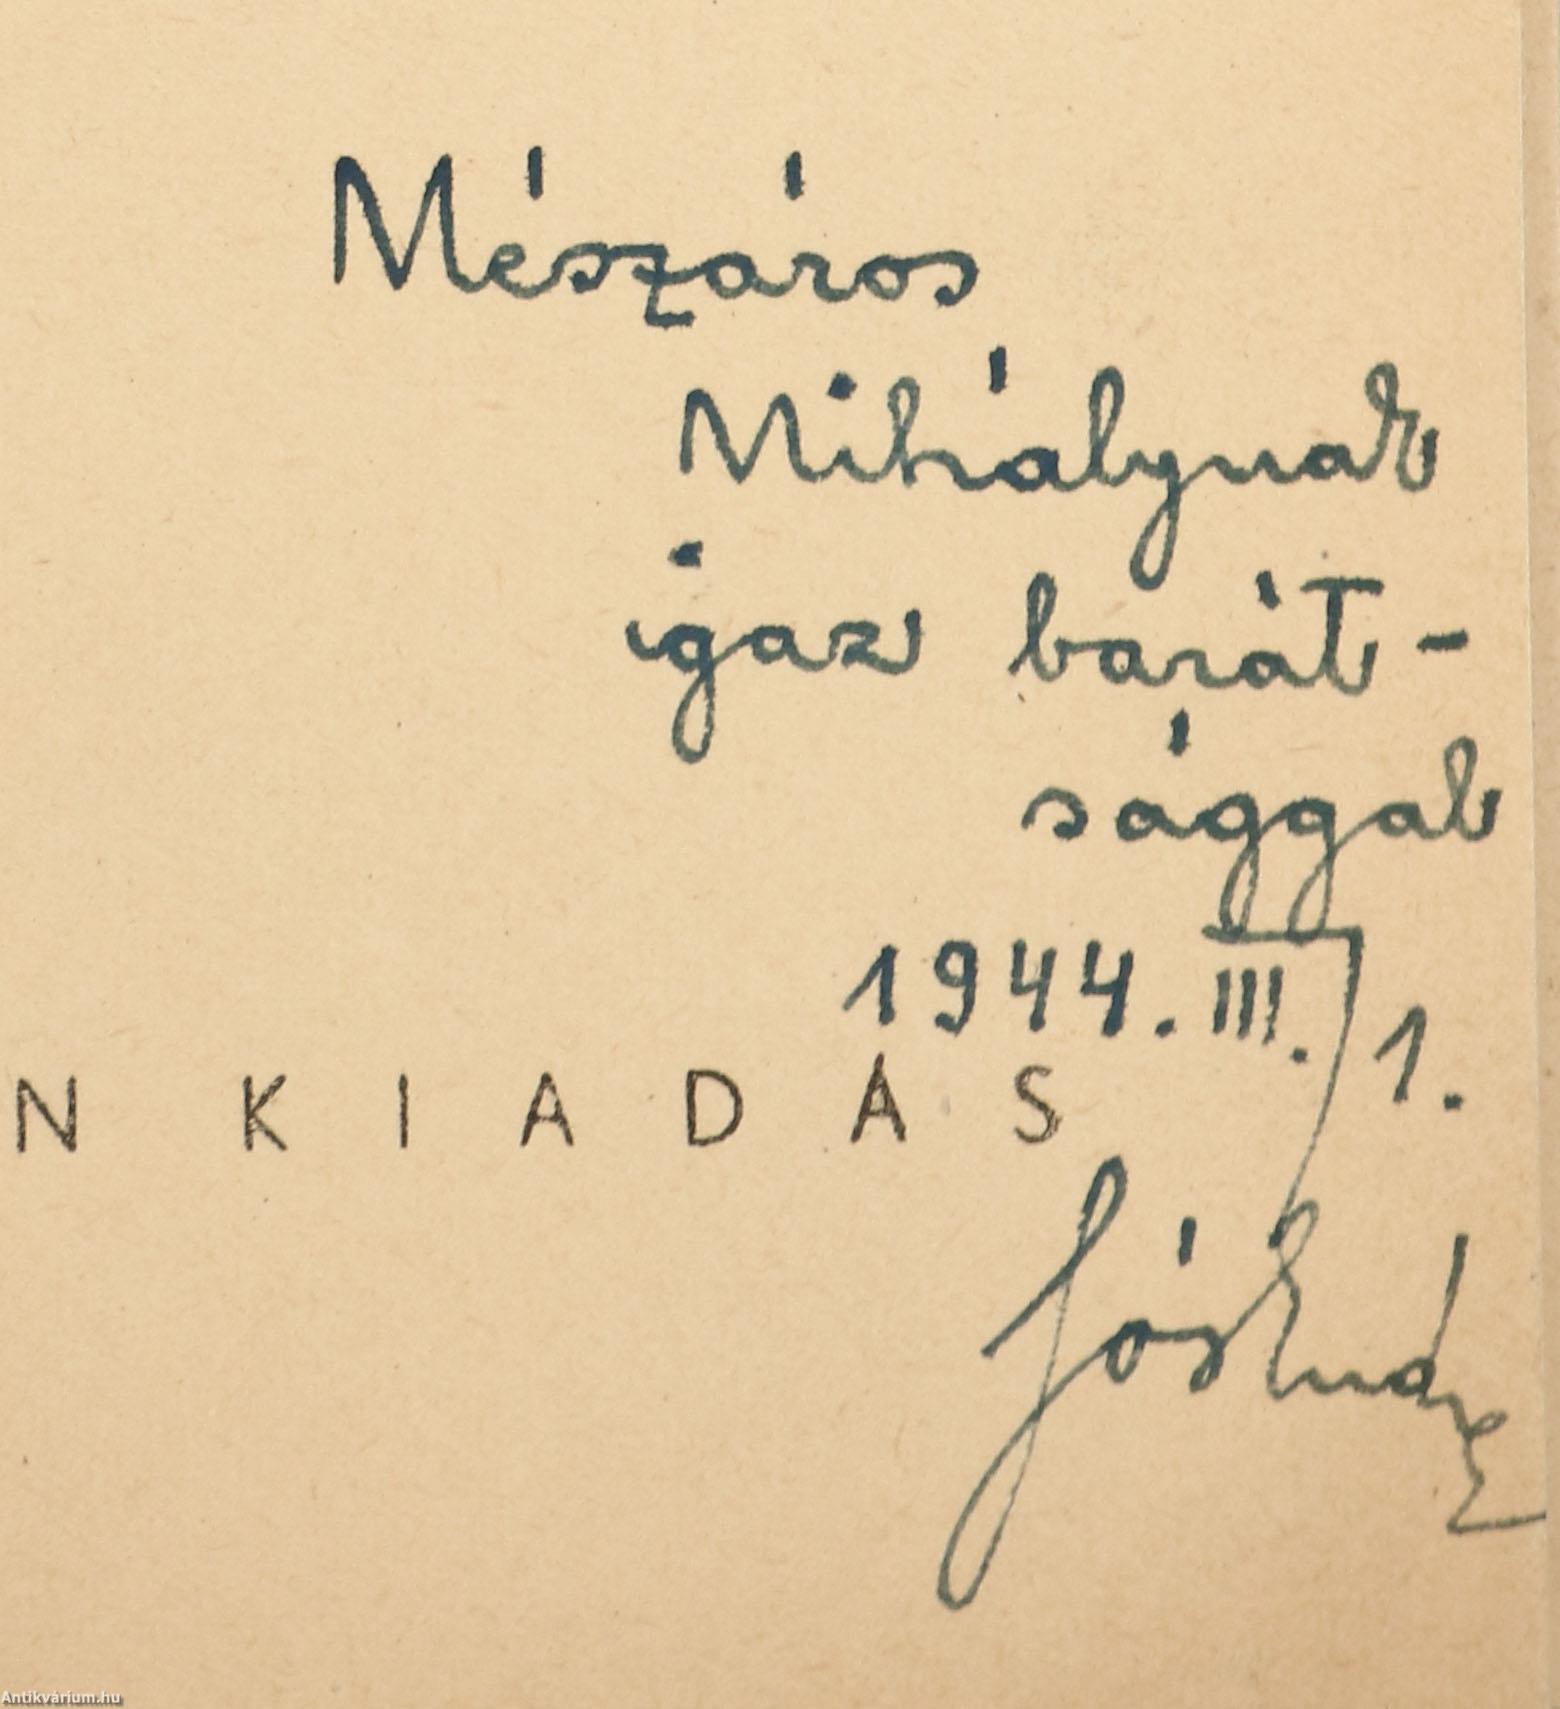 Mészáros
Mihálynak
igaz barát-
sággal
1944. III. 1.
N KIADÁS
Antikvárium.hu